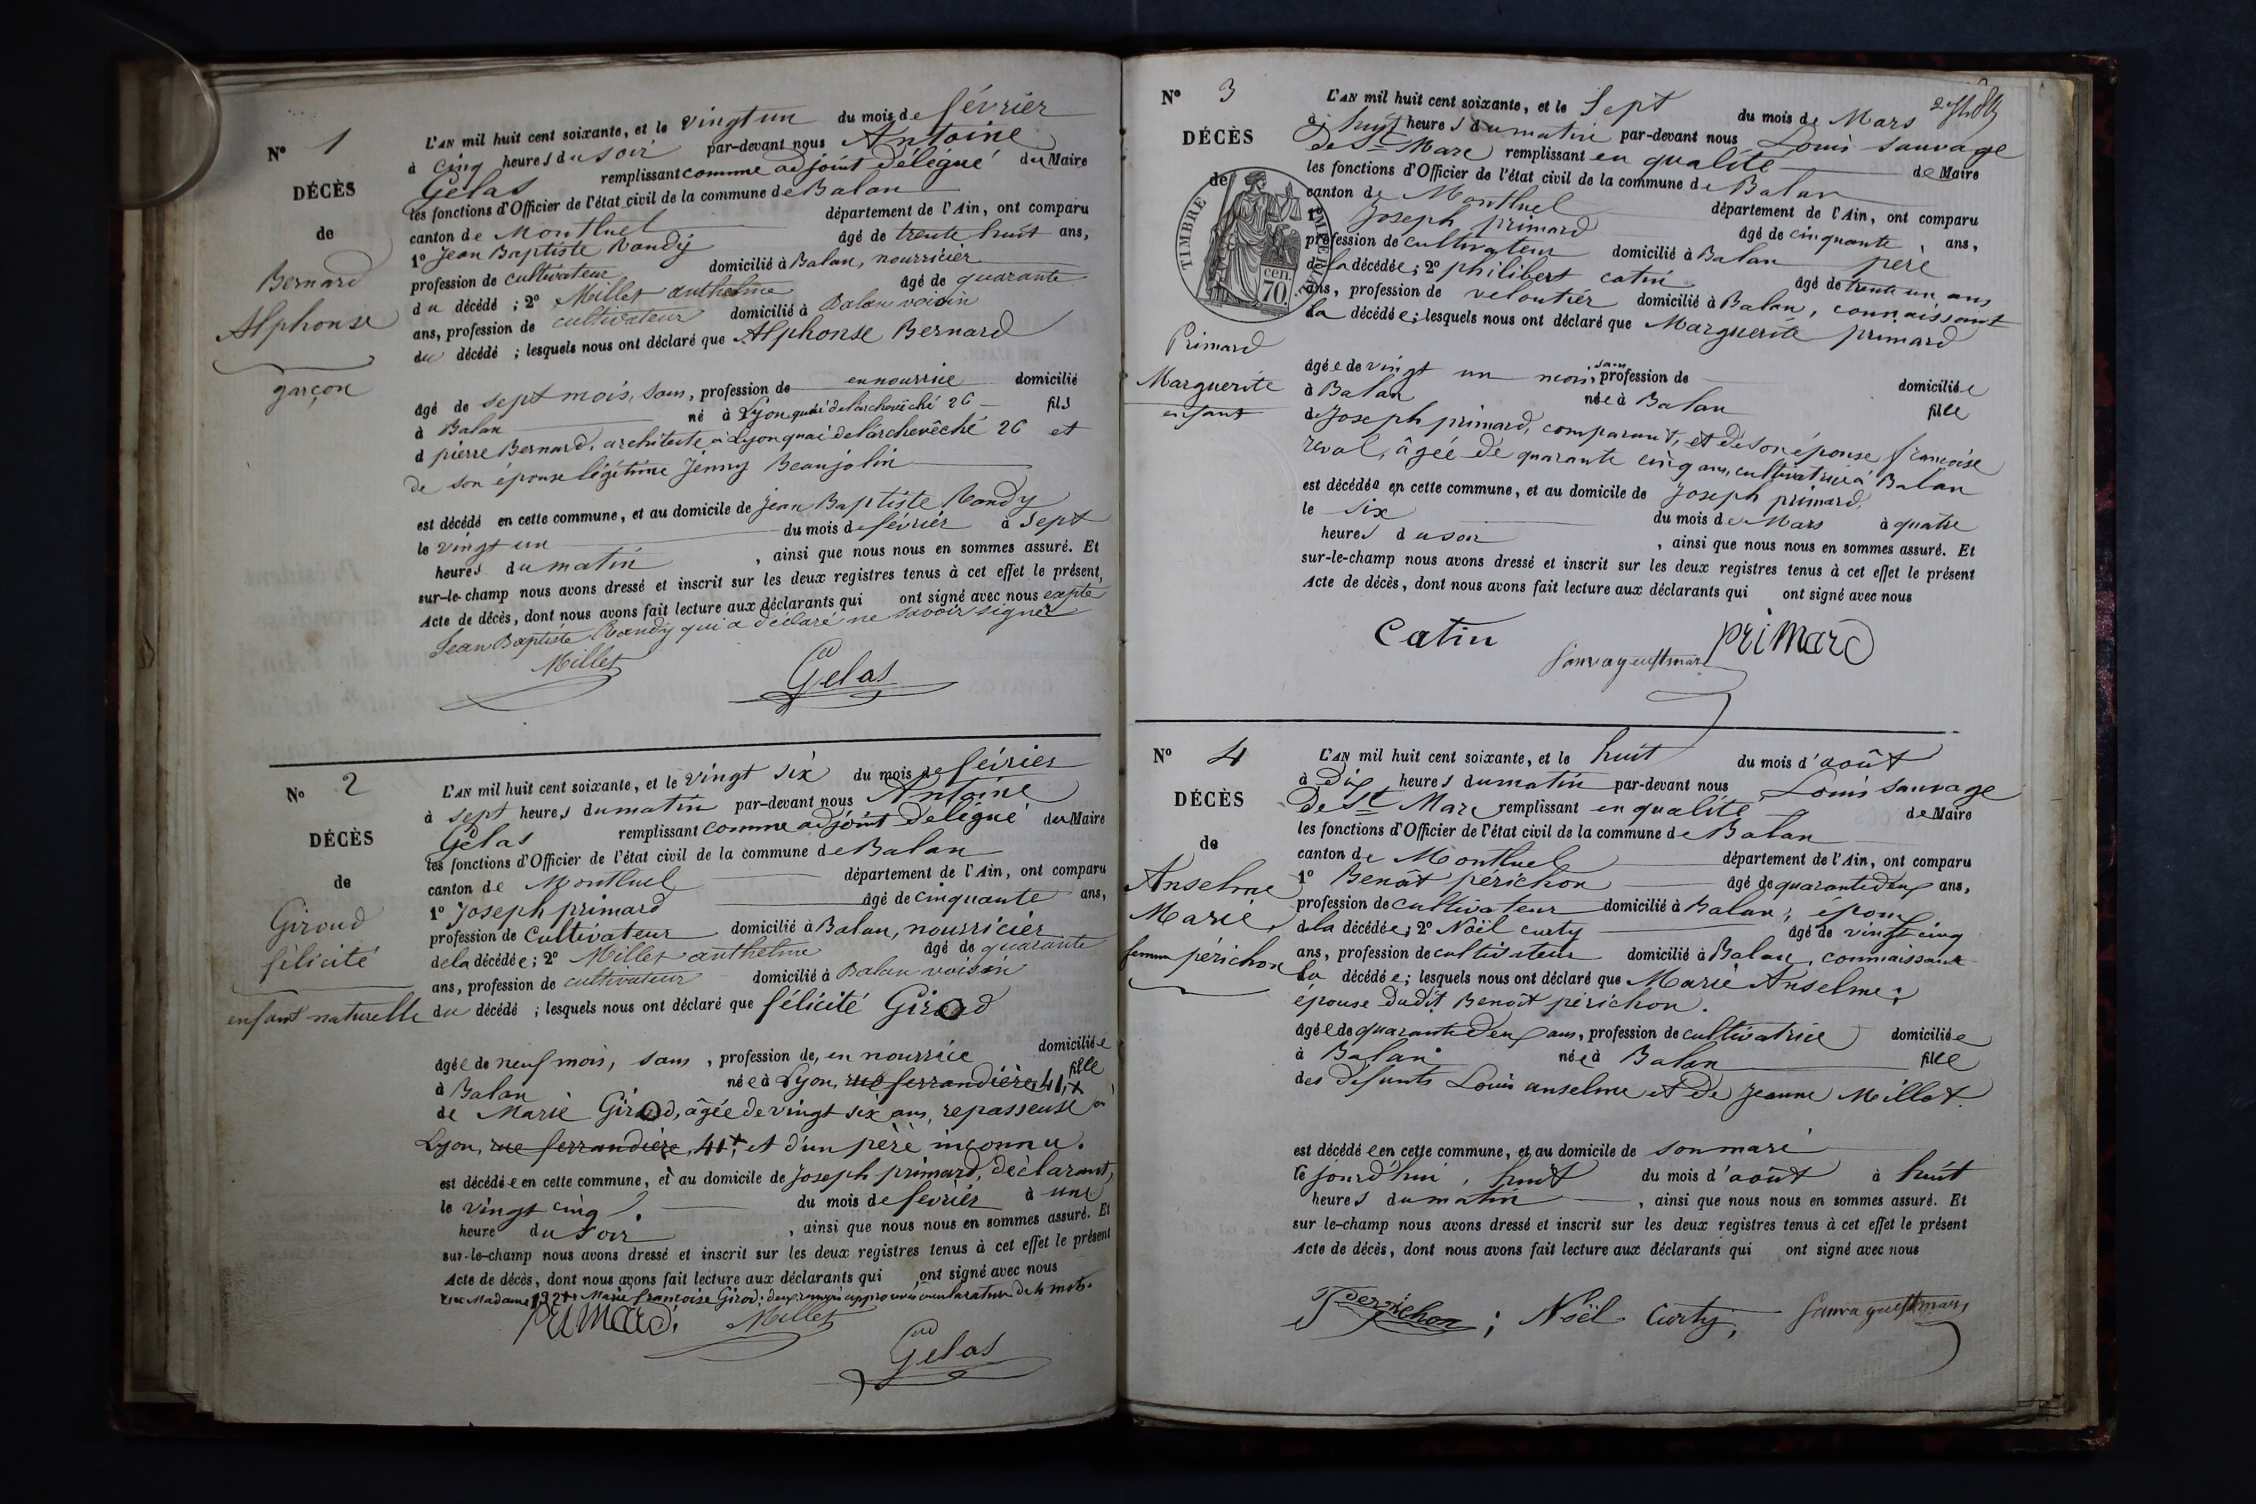 N° 1
DÉCÈS
de
Bernard
Alphonse
garçon
L'AN mil huit cent soixante, et le vingt un du mois de février
à cinq heures du soir par-devant nous Antoine
Gelas remplissant comme adjoint délégué du Maire
les fonctions d'Officier de l'état civil de la commune de Balan
canton de Montluel département de l'Ain, ont comparu
1° Jean Baptiste Randy âgé de trente huit ans,
profession de cultivateur domicilié à Balan, nourricier
du décédé ; 2° Millet anthelme âgé de quarante
ans, profession de cultivateur domicilié à Balan voisin
du décédé ; lesquels nous ont déclaré que Alphonse Bernard
âgé de sept mois, sans, profession de en nourrice domicilié
à Balan né à Lyon, quai de l'archevêché 26 fils
d pierre Bernard, architecte à Lyon quai de l'archevêché 26 et
de son épouse légitime Jenny Beaujolin
est décédé en cette commune, et au domicile de Jean Baptiste Randy
le vingt un du mois de février à sept
heures du matin , ainsi que nous nous en sommes assuré. Et
sur-le-champ nous avons dressé et inscrit sur les deux registres tenus à cet effet le présent,
Acte de décès, dont nous avons fait lecture aux déclarants qui ont signé avec nous expte
Jean Baptiste Randy qui a déclaré ne savoir signer
Millet Gelas
N° 2
DÉCÈS
de
Giroud
félicité
enfant naturelle
L'AN mil huit cent soixante, et le vingt six du mois de février
à sept heures du matin par-devant nous Antoine
Gelas remplissant comme adjoint délégué du Maire
les fonctions d'Officier de l'état civil de la commune de Balan
canton de Montluel département de l'Ain, ont comparu
1° Joseph primard âgé de cinquante ans,
profession de Cultivateur domicilié à Balan, nourricier
de la décédée ; 2° Millet anthelme âgé de quarante
ans, profession de cultivateur domicilié à Balan voisin
du décédé ; lesquels nous ont déclaré que félicité Girod
âgée de neuf mois, sans , profession de, en nourrice domiciliée
à Balan née à Lyon, rue ferrandière, 41,+ fille
de Marie Girod, âgée de vingt six ans, repasseuse à
Lyon, rue ferrandière, 41+, et d'un père inconnu.
est décédée en cette commune, et au domicile de Joseph primard, déclarant,
le vingt cinq du mois de février à une
heure du soir , ainsi que nous nous en sommes assuré. Et
sur-le-champ nous avons dressé et inscrit sur les deux registres tenus à cet effet le présent
Acte de décès, dont nous avons fait lecture aux déclarants qui ont signé avec nous
rue Madame Marie françoise Girod; deux renvois approuvés de 4 mots.
primard, Millet
Gelas
N° 3
DÉCÈS
de
TIMBRE IMPÉRIAL
70 cen.
Primard
Marguerite
enfant
L'AN mil huit cent soixante, et le Sept du mois de Mars
à huit heures du matin par-devant nous Louis Sauvage
de St Marc remplissant en qualité de Maire
les fonctions d'Officier de l'état civil de la commune de Balan
canton de Montluel département de l'Ain, ont comparu
1° Joseph primard âgé de cinquante , ans,
profession de cultivateur domicilié à Balan père
de la décédée ; 2° philibert catin âgé de trente un ans
ans, profession de veloutier domicilié à Balan, connaissant
la décédée ; lesquels nous ont déclaré que Marguerite primard
âgée de vingt un mois, sans profession de domiciliée
à Balan née à Balan fille
de Joseph primard, comparant, et de son épouse françoise
reval, âgée de quarante cinq ans, cultivatrice à Balan
est décédée en cette commune, et au domicile de Joseph primard,
le six du mois de Mars à quatre
heures du soir , ainsi que nous nous en sommes assuré. Et
sur-le-champ nous avons dressé et inscrit sur les deux registres tenus à cet effet le présent
Acte de décès, dont nous avons fait lecture aux déclarants qui ont signé avec nous
Catin primard
Sauvage de St marc
N° 4
DÉCÈS
de
Anselme
Marie,
femme périchon
L'AN mil huit cent soixante, et le huit du mois d'août
à Dix heures du matin par-devant nous Louis Sauvage
De St Marc remplissant en qualité de Maire
les fonctions d'Officier de l'état civil de la commune de Balan
canton de Montluel département de l'Ain, ont comparu
1° Benoît périchon âgé de quarante deux ans,
profession de cultivateur domicilié à Balan, époux
de la décédée ; 2° Noël curty âgé de vingt cinq
ans, profession de cultivateur domicilié à Balan, connaissant
la décédée ; lesquels nous ont déclaré que Marie Anselme,
épouse dudit Benoît périchon.
âgée de quarante deux ans, profession de cultivatrice domiciliée
à Balan née à Balan fille
des défunts Louis anselme et de Jeanne Millet.
est décédée en cette commune, et au domicile de son mari
le jourd'hui, huit du mois d'août à huit
heures du matin , ainsi que nous nous en sommes assuré. Et
sur le-champ nous avons dressé et inscrit sur les deux registres tenus à cet effet le présent
Acte de décès, dont nous avons fait lecture aux déclarants qui ont signé avec nous
perichon ; Noël Curty, Sauvage de St marc